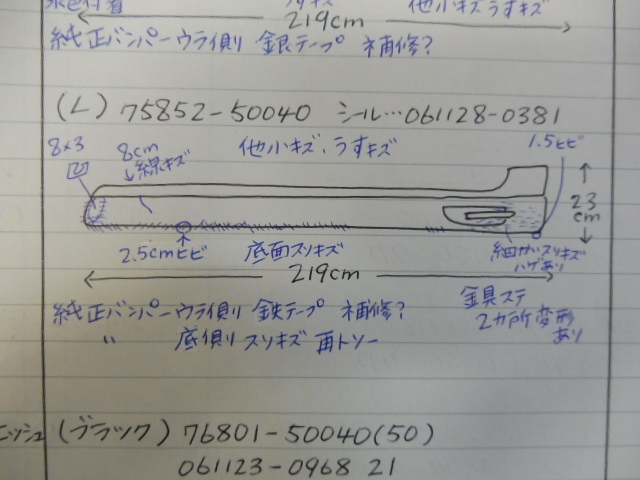 219cm
他小キズうすキズ
純正バンパーウラ側 銀テープ 補修?
(L) 75852-50040 シール…061128-0381
8×3
8cm
線キズ
他小キズ、うすキズ
1.5ヒビ
23
cm
2.5cmヒビ
底面スリキズ
細かいスリキズ
ハゲあり
219cm
純正バンパーウラ側 鉄テープ 補修?
〃 底側スリキズ 再トソー
金具ステ
2カ所変形
あり
ニッシュ (ブラック) 76801-50040(50)
061123-0968 21